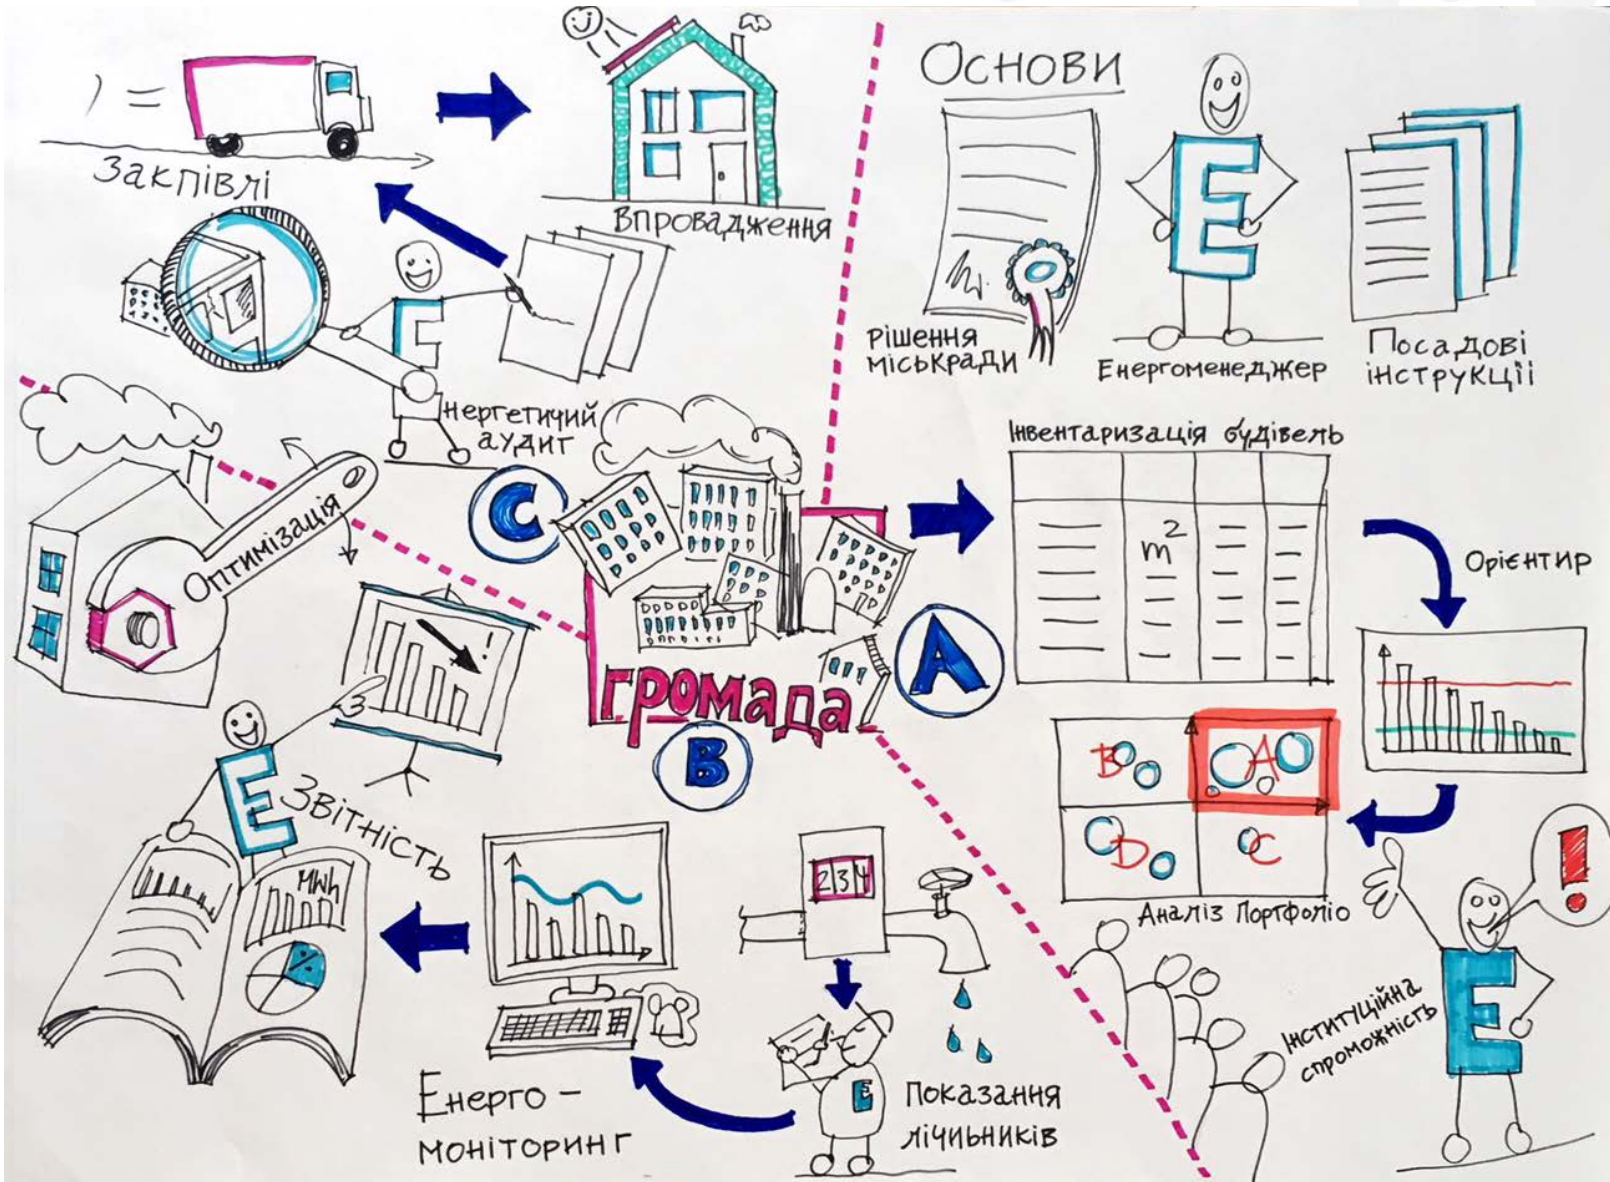 ) =
Закпівлі
Впровадження
Основи
E
Рішення
міськради
Енергоменеджер
Посадові
інструкції
E
нергетичий
аудит
Оптимізація
C
громада
A
B
Інвентаризація будівель
m²
Орієнтир
B
A
D
C
Аналіз Портфоліо
!
E
Інституційна
спроможність
!
E
Звітність
MWh
%
234
E
Енерго -
моніторинг
Показання
лічильників